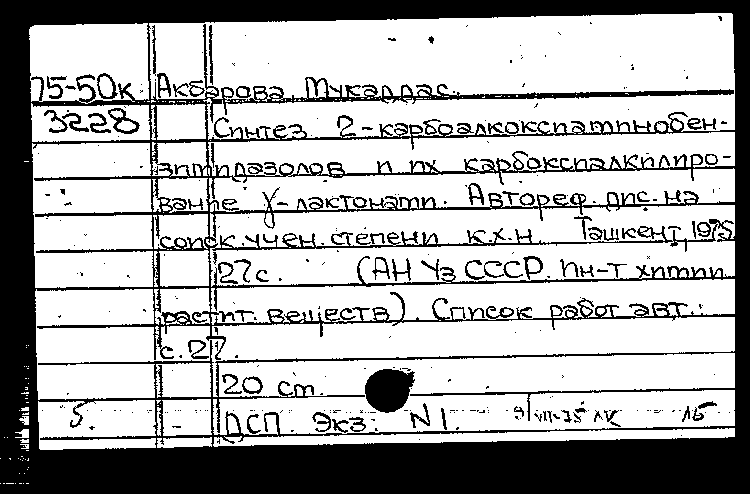 75-50к Акбарова Мукаддас.
3228 Синтез 2-карбоалкоксиаминобен-
зимидазолов и их карбоксиалкилиро-
вание γ-лактонами. Автореф. дис. на
соиск. учен. степени к.х.н. Ташкент, 1975
27с. (АН УзССР. Ин-т химии
растит. веществ). Список работ авт.:
с. 27.
20 cm.
5. - ДСП. Экз. N1. 9/VII-75 15